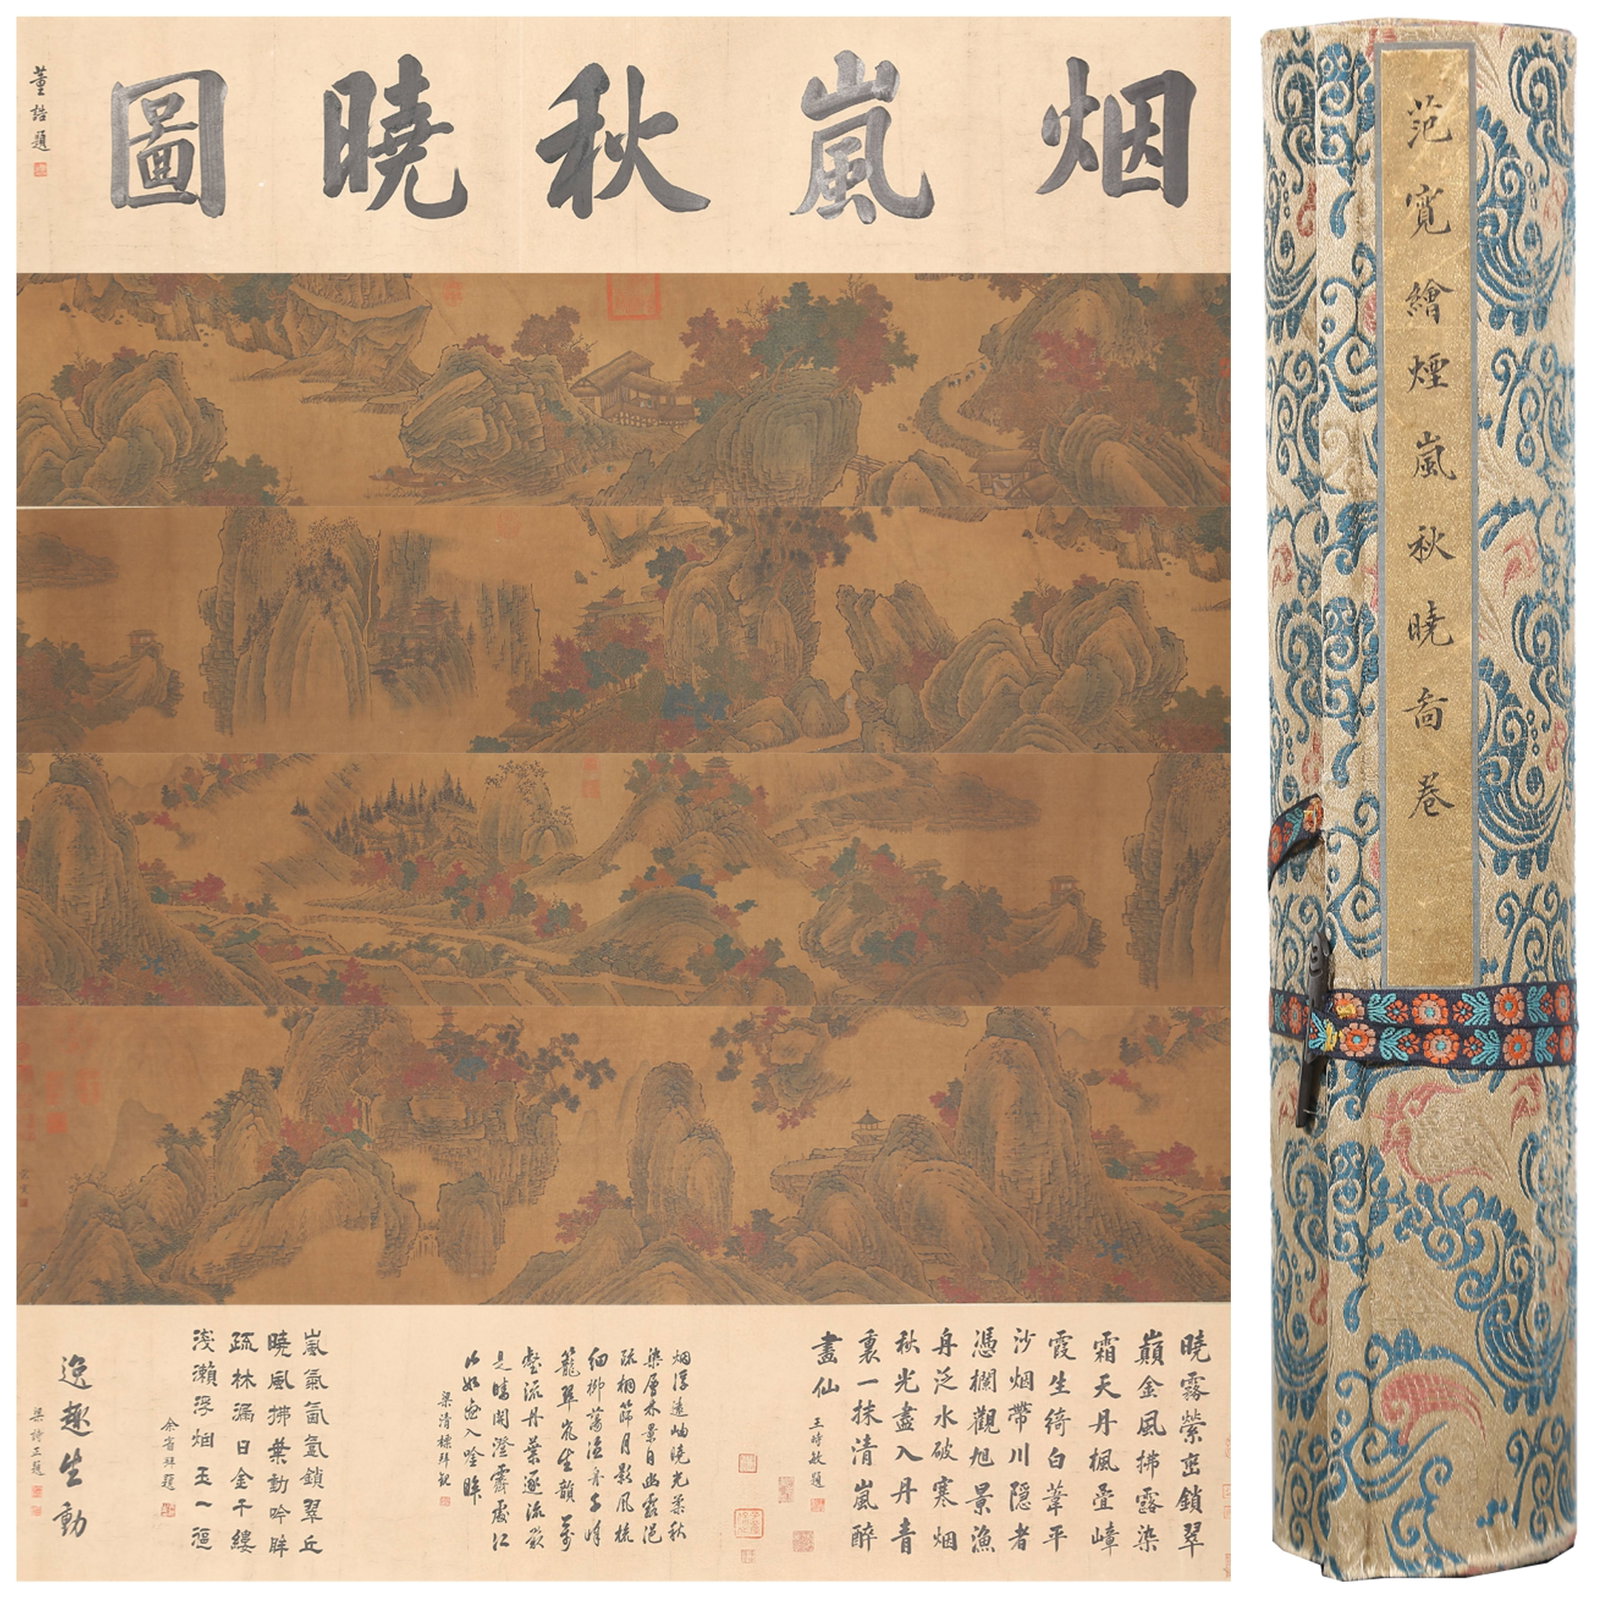 烟嵐秋曉圖
董誥題
范寬繪煙嵐秋曉啚卷
曉霧縈巒鎖翠
巔金風拂露染
霜天丹楓疊嶂
霞生綺白葦平
沙烟帶川隱者
憑欄觀旭景漁
舟泛水破寒烟
秋光盡入丹青
裏一抹清嵐醉
畫仙
王時敏題
烟浮遠岫曉光柔秋
染層木景自幽露浥
疏桐篩月影風梳
細柳蕩漁舟千峰
籠翠嵐生韻萬
壑流丹葉逐流
是晴開澄霽處江
山如画入吟眸
梁清標拜觀
嵐氣氤氳鎖翠丘
曉風拂葉動吟眸
疏林漏日金千縷
淺瀨浮烟玉一漚
余省拜題
逸趣生動
梁詩正題